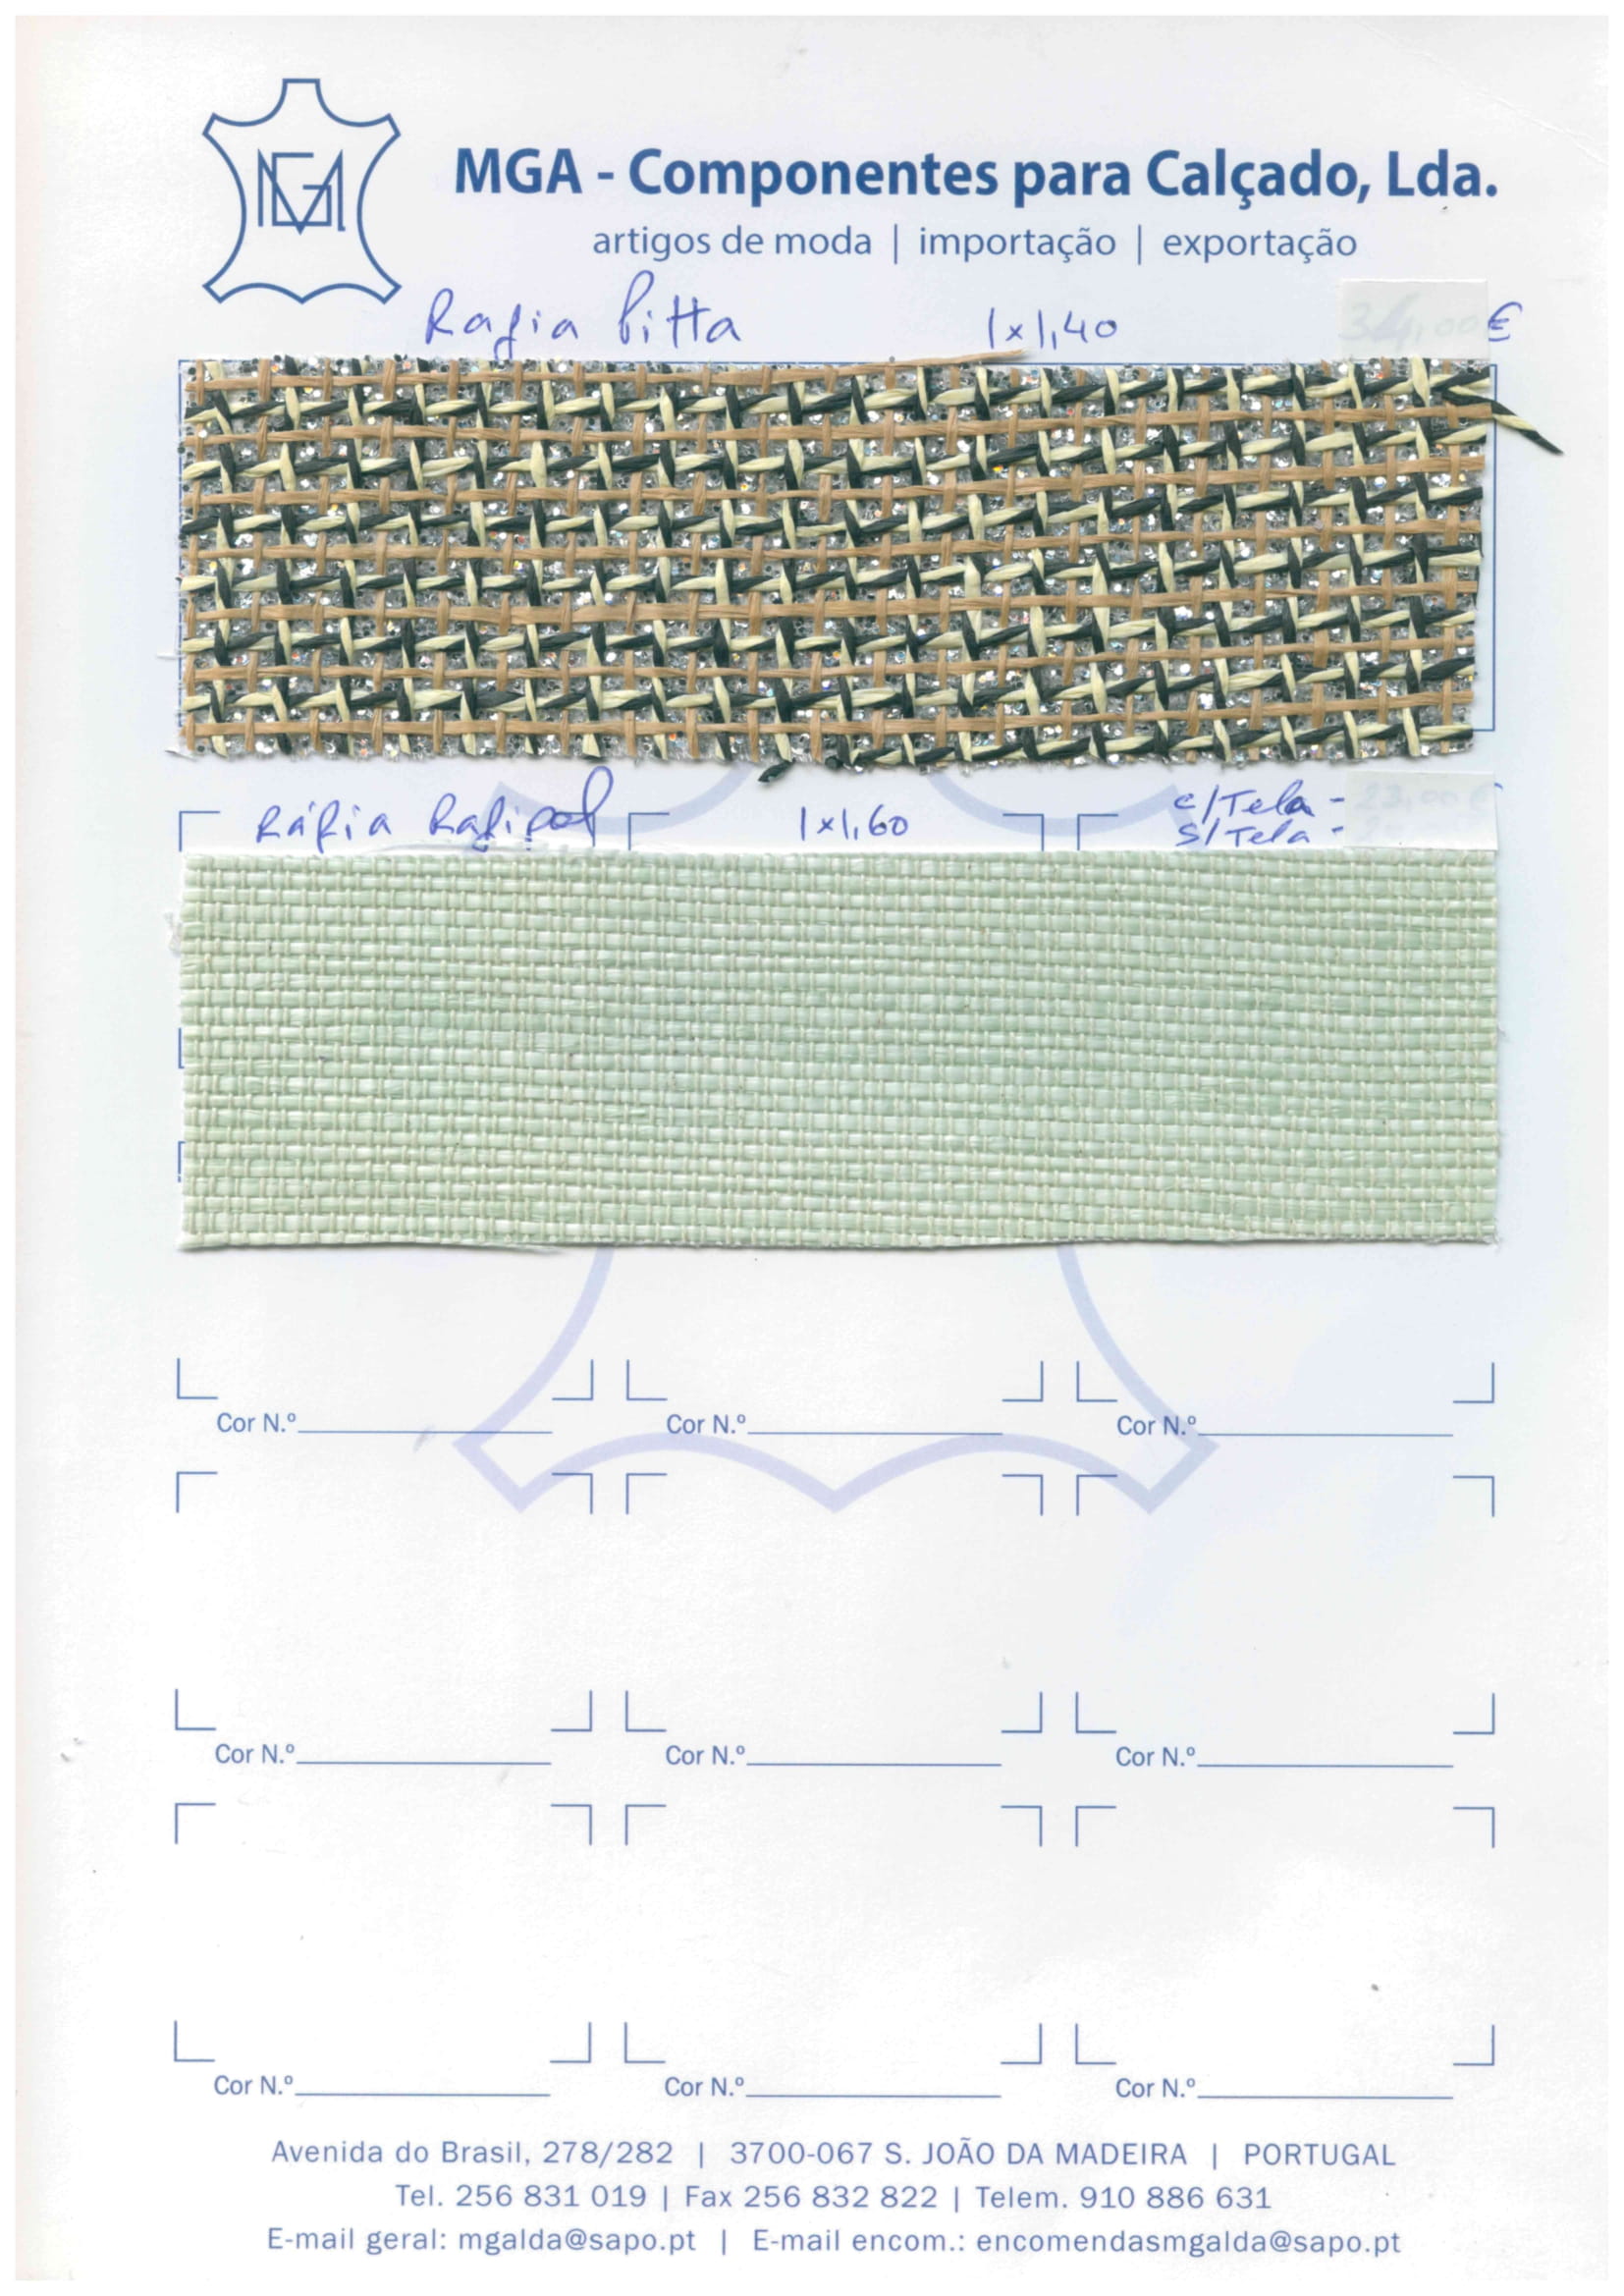 MGA
MGA - Componentes para Calçado, Lda.
artigos de moda | importação | exportação
Rafia Pitta 1x1,40 34,00 €
Ráfia Rafipol 1x1,60 c/Tela - 23,00 €
s/Tela -
Cor N.º Cor N.º Cor N.º
Cor N.º Cor N.º Cor N.º
Cor N.º Cor N.º Cor N.º
Avenida do Brasil, 278/282 | 3700-067 S. JOÃO DA MADEIRA | PORTUGAL
Tel. 256 831 019 | Fax 256 832 822 | Telem. 910 886 631
E-mail geral: mgalda@sapo.pt | E-mail encom.: encomendasmgalda@sapo.pt